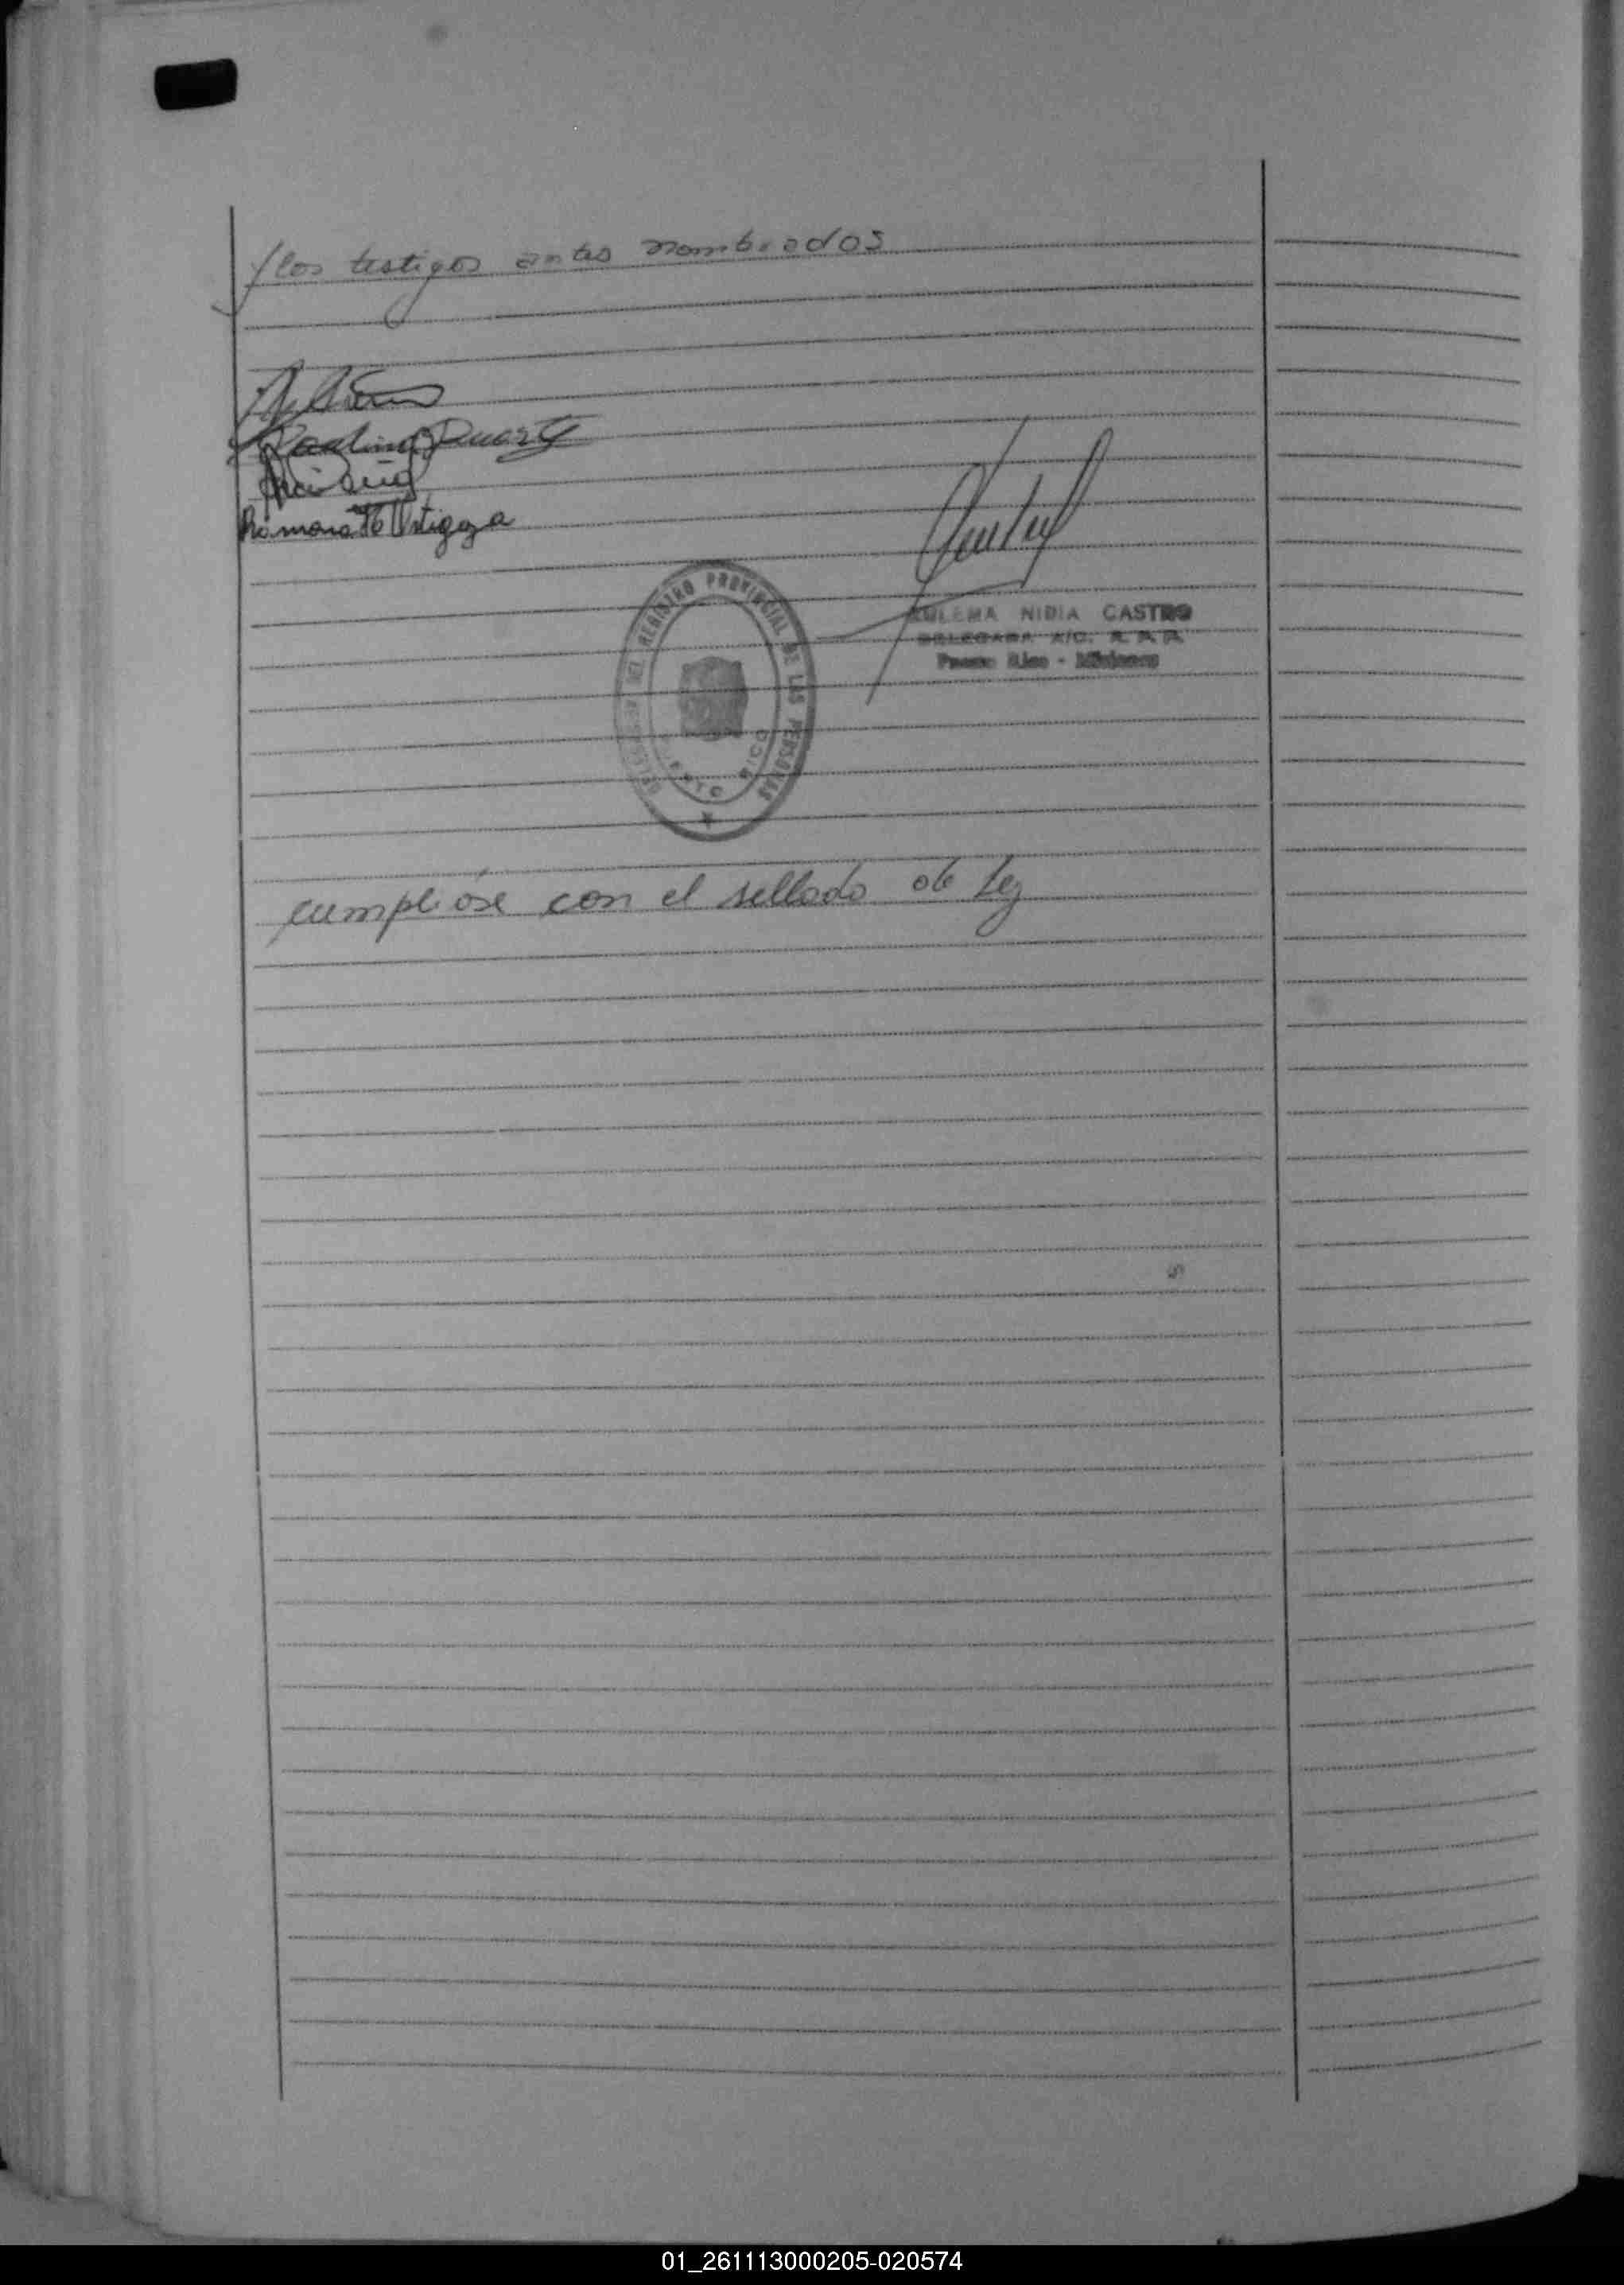 /los testigos antes nombrados
Paulino Duarte
Ramona H Ortigoza
DELEGACION DEL REGISTRO PROVINCIAL DE LAS PERSONAS
PUERTO RICO
ZULEMA NIDIA CASTRO
DELEGADA A/C. R. P. P.
Puerto Rico - Misiones
cumplióse con el sellado de Ley
01_261113000205-020574